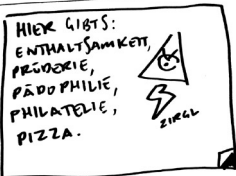 HIER GIBTS:
ENTHALTSAMKEIT,
PRÜDERIE,
PÄDOPHILIE,
PHILATELIE,
PIZZA.
ZIRGL